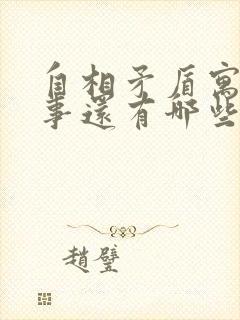 自相矛盾寓
事還有哪些
趙璧